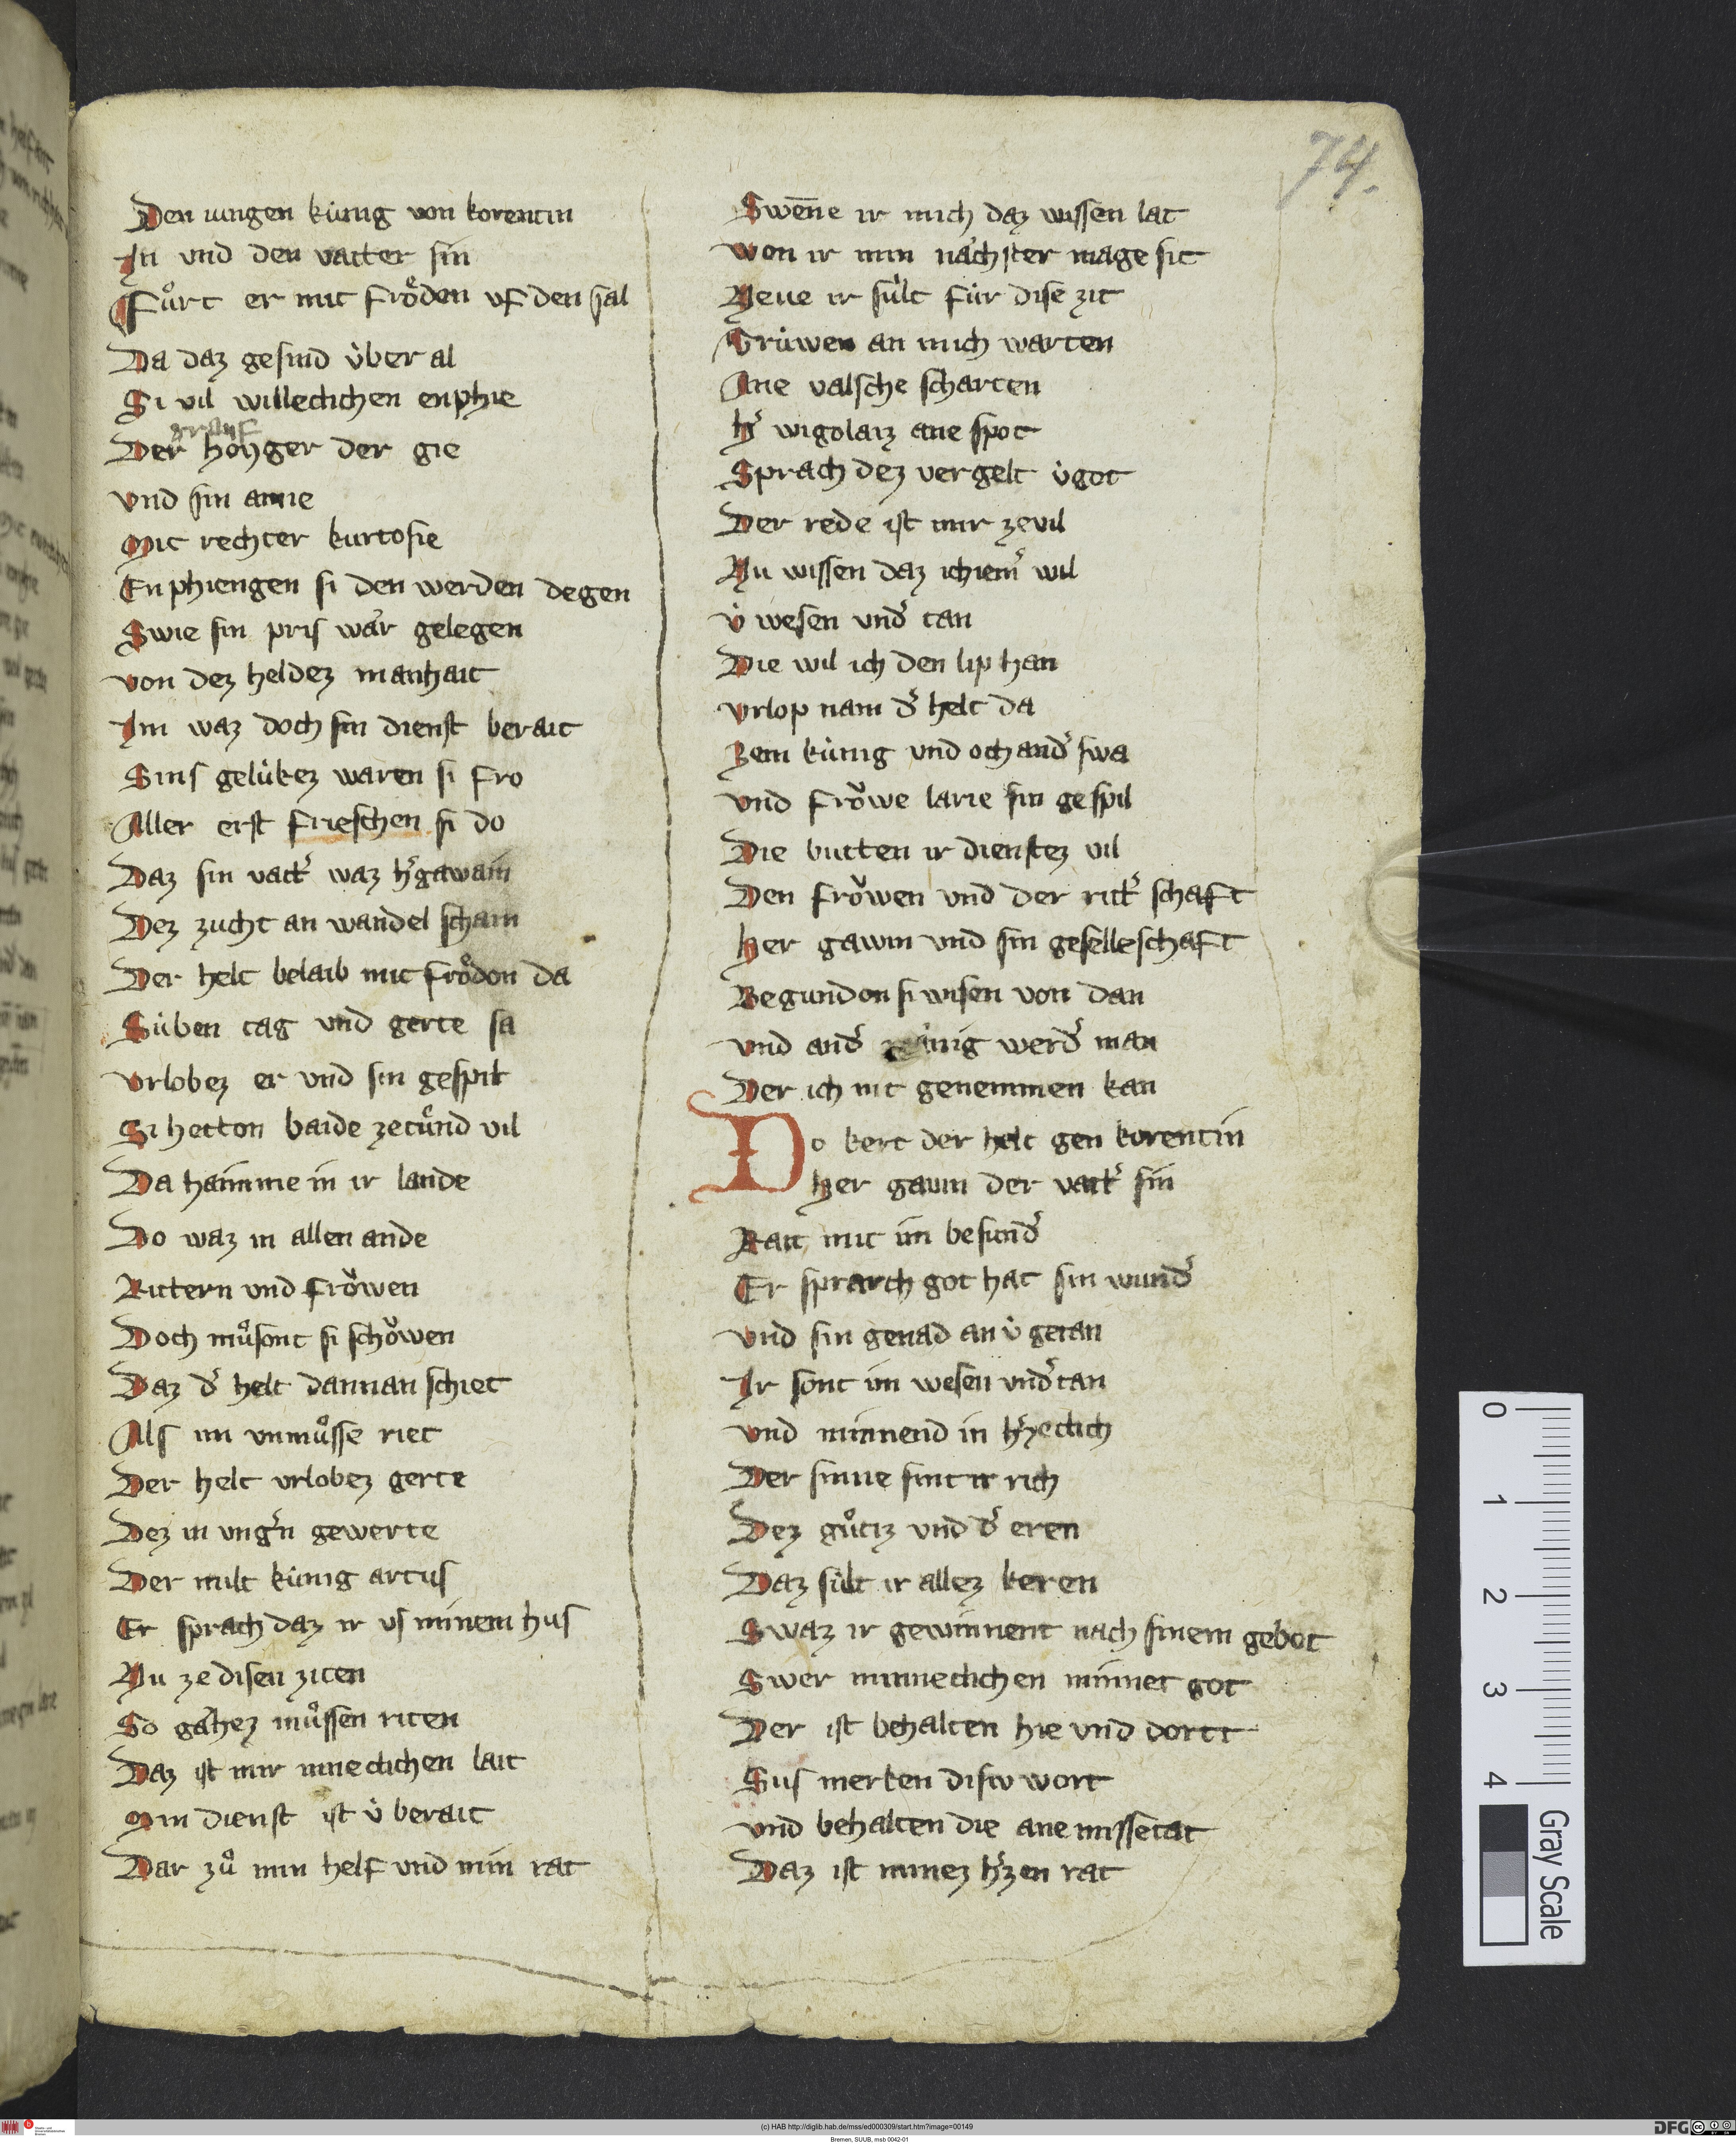 74.
Den iungen kuͤnig von korentin
In vnd den vatter sin
Fuͦrt er mit froͤden vf den sal
Da daz gesind uͤber al
Si vil willeclichen enphie
grauf
Der hoyger der gie
vnd sin amie
Mit rechter kurtosie
Enphiengen si den werden degen
Swie sin pris waͤr gelegen
von dez heldez manhait
Im waz doch sin dienst berait
Sins geluͤkez waren si fro
Aller erst frieschen si do
Daz sin vatt͛ waz h͛ gawain
Dez zucht an wandel scham
Der helt belaib mit froͤdon da
Suͤben tag vnd gerte sa
vrlobez er vnd sin gespil
Si hetton baide zetuͤnd vil
Da haimme in ir lande
Do waz in allen ande
Rittern vnd froͮwen
Doch muͦsont si schoͮwen
Daz d͛ helt dannan schiet
Als im vnmuͦsse riet
Der helt vrlobez gerte
Dez in vng͛n gewerte
Der milt kuͤnig artus
Er sprach daz ir vs minem hus
Nu ze disen ziten
So gaͤhez muͦssen riten
Daz ist mir inneclichen lait
Min dienst ist uͤ berait
Dar zuͦ min helf vnd min rat
Swen̄e ir mich daz wissen lat
won ir min naͤchster mage sit
Neue ir suͤlt fuͤr dise zit
Truͤwen an mich warten
Ane valsche scharten
h͛ wigolaiz ane spot
Sprach dez vergelt uͤ got
Der rede ist mir zevil
Nu wissen daz ich iem͛ wil
uͤ wesen vnd͛ tan
Die wil ich den lip han
vrlop nam d͛ helt da
Zem kuͤnig vnd och and͛swa
vnd froͮwe larie sin gespil
Die butten ir dienstez vil
Den froͮwen vnd der ritt͛schaft
her gawin vnd sin geselleschaft
Begundon si wisen von dan
vnd and͛ maͤnig werd͛ man
Der ich nit genemmen kan
Do kert der helt gen korentin
her gawin der vatt͛ sin
Rait mit im besund͛
Er sprarch got hat sin wund͛
vnd sin genad an uͤ getan
Ir sont im wesen vnd͛tan
vnd minnend in h͛zeclich
Der sinne sint ir rich
Dez guͦtz vnd d͛ eren
Daz suͤlt ir allez keren
Swaz ir gewinnent nach sinem gebot
Swer minneclichen minnet got
Der ist behalten hie vnd dortt
Sus merken disiv wort
vnd behalten die ane missetat
Daz ist minez h͛zen rat
0
1
2
3
4
Gray Scale
(c) HAB http://diglib.hab.de/mss/ed000309/start.htm?image=00149
Bremen, SUUB, msb 0042-01
DFG